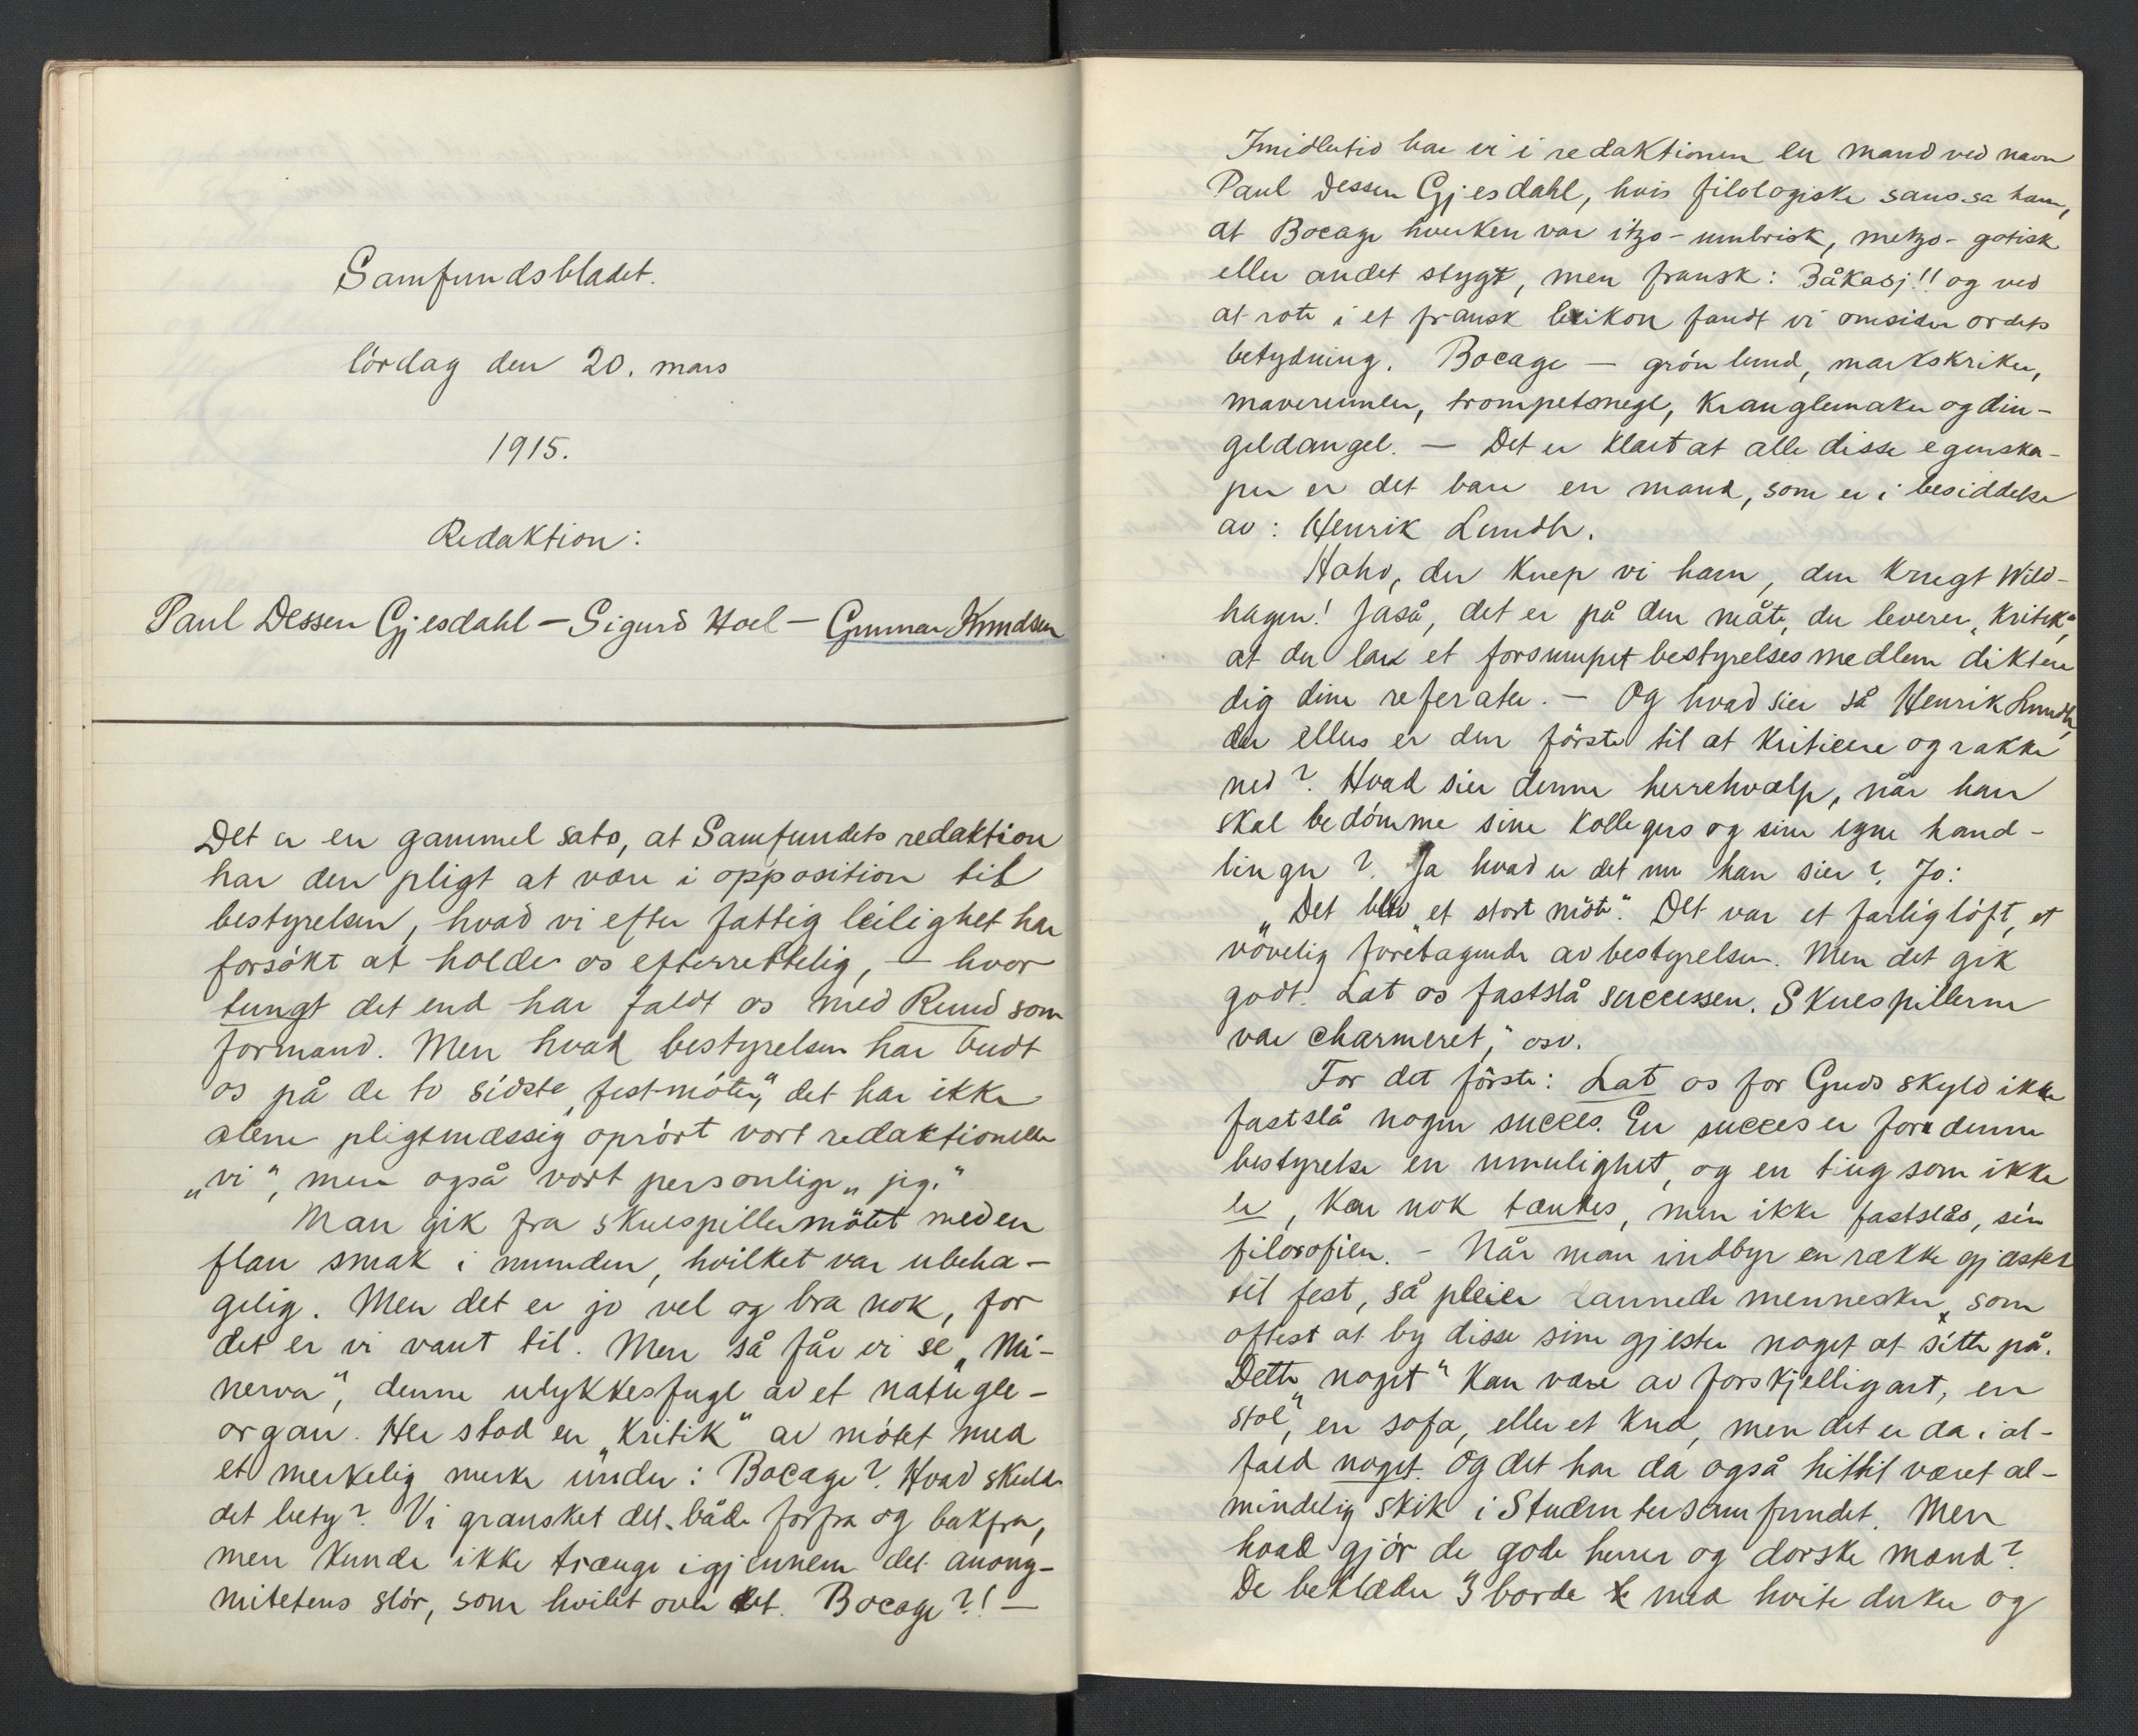 Samfundsbladet.
lördag den 20. mars
1915.
Redaktion:
Paul Dessen Gjesdahl – Sigurd Hoel – Gunnar Knudsen
Det er en gammel sats, at Samfundets redaktion
har den pligt at være i opposition til
bestyrelsen, hvad vi efter fattig leilighet har
forsökt at holde os efterrettelig, – hvor
tungt det end har faldt os med Ruud som
formand. Men hvad bestyrelsen har budt
os på de to sidste „festmöter“, det har ikke
alene pligtmæssig oprört vort redaktionelle
„vi“, men også vort personlige „jeg.“
Man gik fra skuespillermötet med en
flau smak i munden, hvilket var ubeha-
gelig. Men det er jo vel og bra nok, for
det er vi vant til. Men så får vi se „Mi-
nerva“, denne ulykkesfugl av et natugle-
organ. Her stod en „Kritik“ av mötet med
et merkelig merke under: Bocage? Hvad skulde
det bety? Vi gransket det både forfra og bakfra,
men kunde ikke trænge igjennem det anony-
mitetens slör, som hvilet over det. Bocage?! –
Imidlertid har vi i redaktionen en mand ved navn
Paul Dessen Gjesdahl, hvis filologiske sans sa ham,
at Bocage hverken var itzo-umbrisk, metzo-gotisk
eller andet stygt, men fransk: Båkasj!! og ved
at rote i et fransk lexikon fandt vi omsider ordets
betydning. Bocage – grön lund, markskriker,
maverumler, trompetsnegl, kranglemaker og din-
geldangel. – Det er klart at alle disse egenska-
per er det bare en mand, som er i besiddelse
av: Henrik Lundh.
Hoho, der knep vi ham, den krugt Wild-
hagen! Jaså, det er på den måte, du leverer „kritik“,
at du lar et forsumpet bestyrelsesmedlem diktere
dig dine referater. – Og hvad sier så Henrik Lundh,
der ellers er den förste til at kritisere og rakke
ned? Hvad sier denne herrehvalp, når han
skal bedömme sine kollegers og sine egne hand-
linger? Ja hvad er det nu han sier? Jo:
„Det blev et stort möte“. Det var et farlig löft, et
vövelig foretagende av bestyrelsen. Men det gik
godt. Lat os fastslå successen. Skuespillerne
var charmeret,“ osv.
For det förste: Lat os for Guds skyld ikke
fastslå nogen succes. En succes er for denne
bestyrelse en umulighet, og en ting som ikke
er, kan nok tænkes, men ikke fastslås, sier
filosofien. – Når man indbyr en række gjæster
til fest, så pleier dannede mennesker, som
oftest at by disse sine gjester noget at sitte på.
Dette „noget“ kan være av forskjellig art, en
stol, en sofa, eller et kne, men det er da i al-
fald noget. Og det har da også hittil været al-
mindelig skik i Studentersamfundet. Men
hvad gjör de gode herrer og dorske mænd?
De beklæder 3 borde med hvite duker og